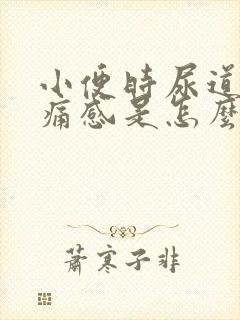 小便时尿道
痛感是怎麼
萧寒子非